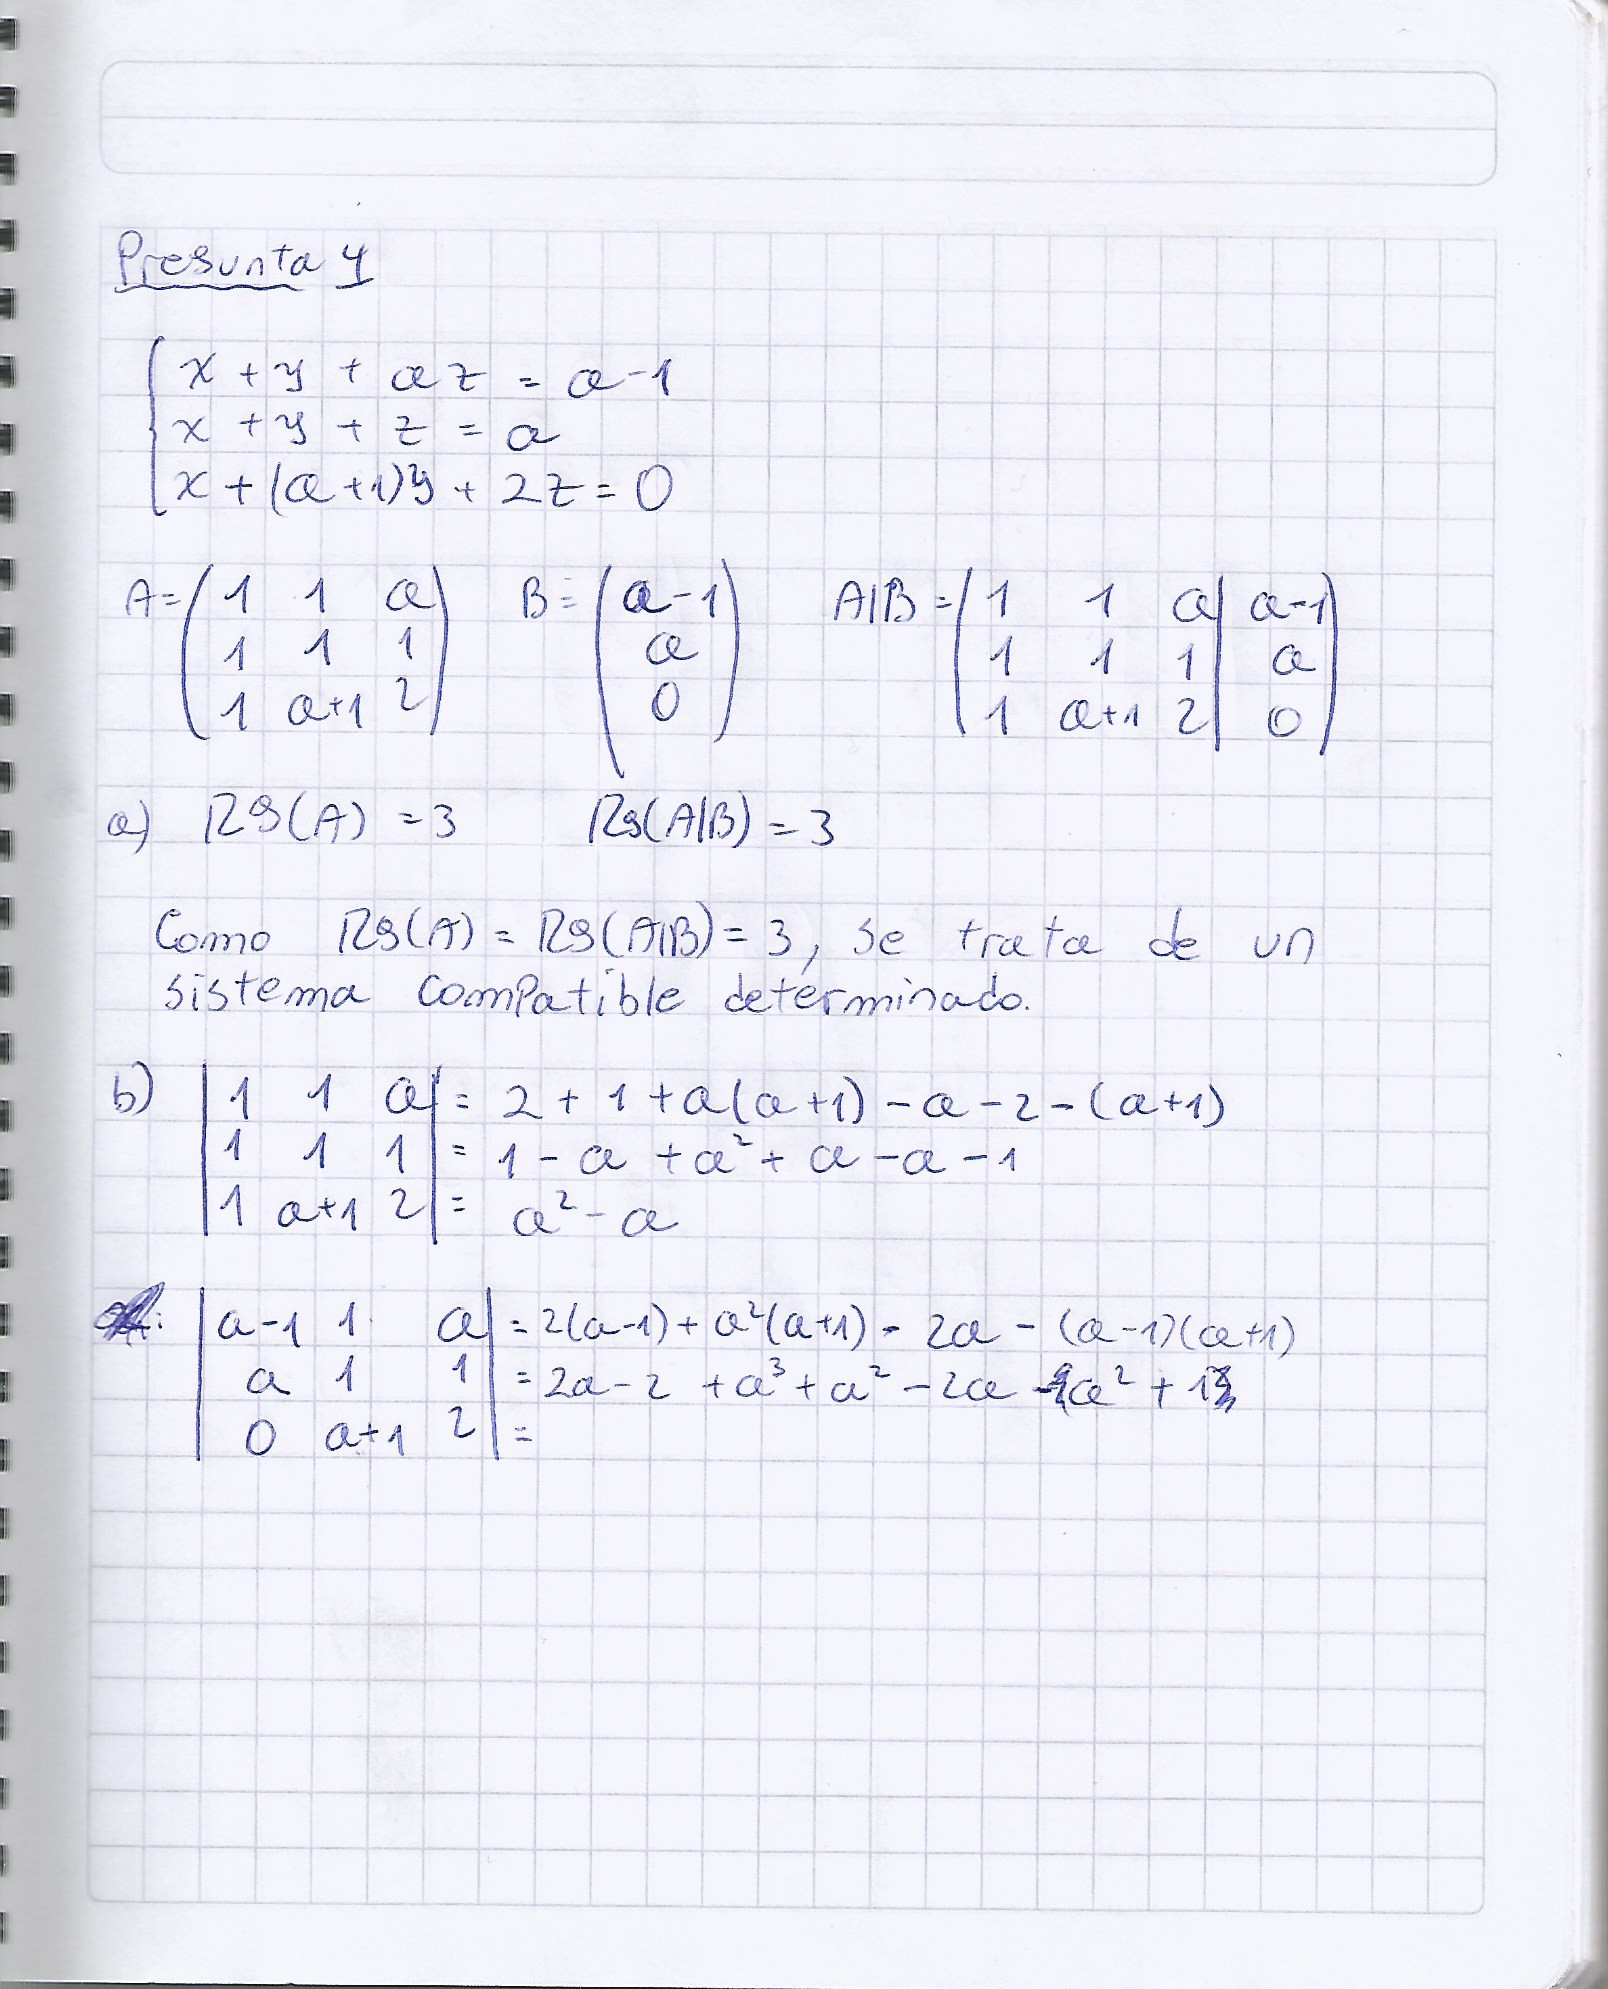 Pregunta 4
x + y + az = a-1
x + y + z = a
x + (a+1)y + 2z = 0
A = ( 1 1 a ) B = ( a-1 ) A|B = ( 1 1 a | a-1 )
1 1 1 a 1 1 1 | a
1 a+1 2 0 1 a+1 2 | 0
a) Rg(A) = 3 Rg(A|B) = 3
Como Rg(A) = Rg(A|B) = 3, se trata de un
sistema compatible determinado.
b) | 1 1 a | = 2 + 1 + a(a+1) - a - 2 - (a+1)
| 1 1 1 | = 1 - a + a² + a - a - 1
| 1 a+1 2 | = a² - a
| a-1 1 a | = 2(a-1) + a²(a+1) - 2a - (a-1)(a+1)
| a 1 1 | = 2a - 2 + a³ + a² - 2a - a² + 1
| 0 a+1 2 | =